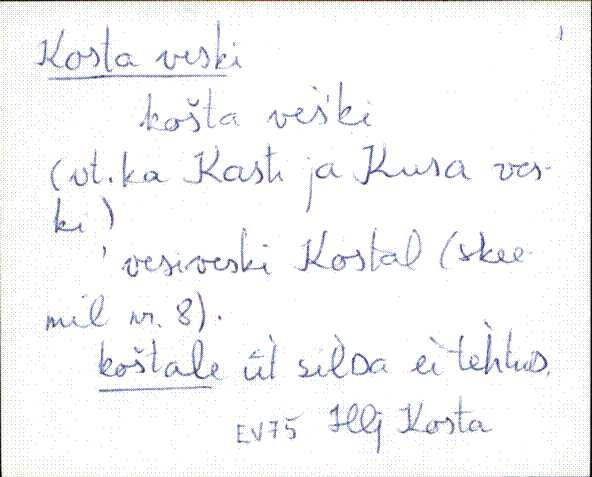 1
Kosta veski
košta veš'ki
(vt. ka Kasti ja Kusa ves-
ki)
' vesiveski Kostal (skee-
mil nr. 8).
koštale üt silDa
EV75 Hlj Kosta